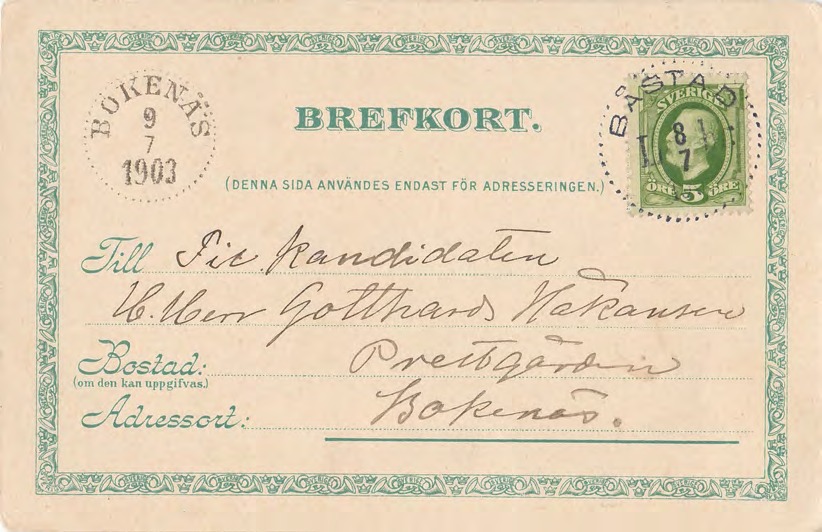 BOKENÄS
9
7
1903
BREFKORT.
(DENNA SIDA ANVÄNDES ENDAST FÖR ADRESSERINGEN.)
BÅSTAD
8
7
SVERIGE
ÖRE 5 ÖRE
Till Fil. kandidaten
H. Herr Gotthards Håkansson
Bostad: Prestgården
(om den kan uppgifvas.)
Adressort: Bokenäs.